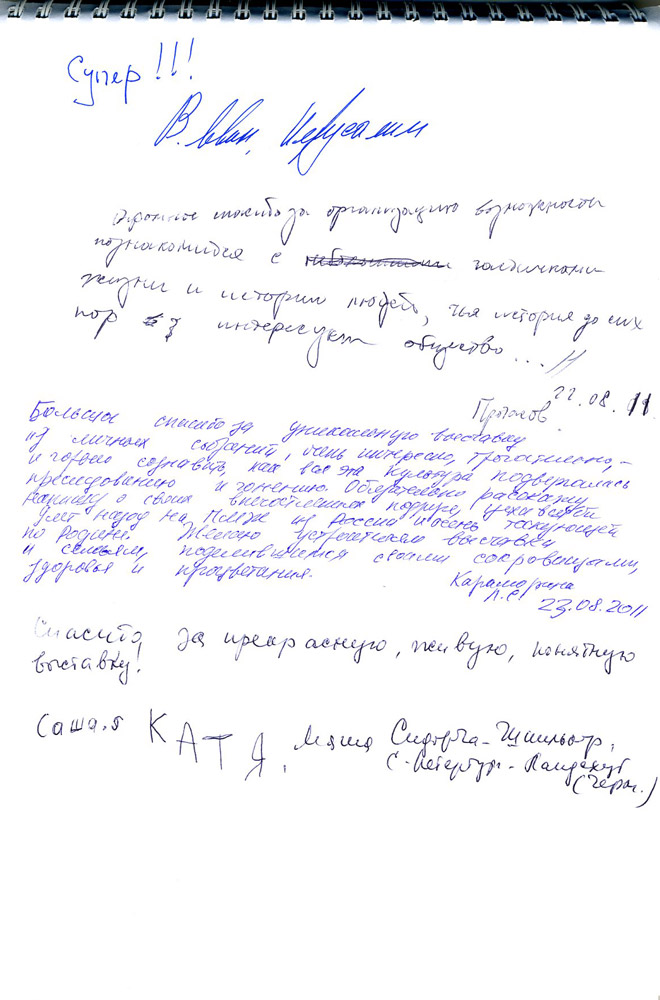 Супер!!!
В. Иерусалим
Огромное спасибо за организацию возможности
познакомиться с
жизни и истории людей, чья история до сих
пор интересует общество...//
22.08.11
Большое спасибо за уникальную выставку
из личных собраний, очень интересно, трогательно, –
и горько сознавать, как вся эта культура подвергалась
преследованию и гонению. Обязательно расскажу
напишу о своих впечатлениях подруге, уехавшей
лет назад на ПМЖ из России и очень тоскующей
по Родине. Желаю устроителям выставки
и семьям, поделившимся своими сокровищами,
здоровья и процветания.
Л.С.
23.08.2011
Спасибо за прекрасную, живую, понятную
выставку!
Саша.
КАТЯ, Маша
С-Петербург - Ландсхут
(Герм.)